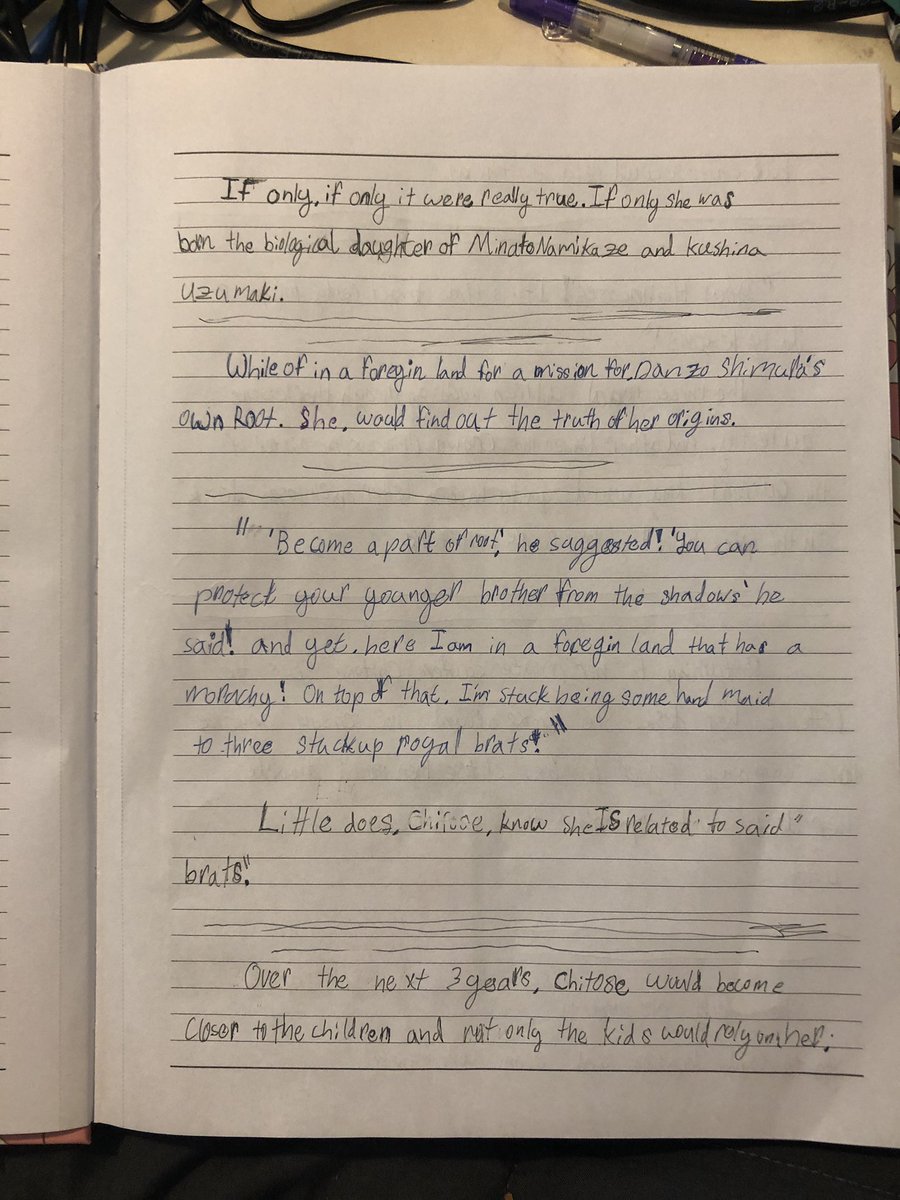 If only, if only it were really true. If only she was
born the biological daughter of Minato Namikaze and Kushina
Uzumaki.
While of in a foregin land for a mission for, Danzo Shimura's
own Root. She, would find out the truth of her origins.
" 'Become a part of root', he suggested! 'You can
protect your younger brother from the shadows' he
said! and yet, here I am in a foregin land that has a
morachy! On top of that, I'm stuck being some hand maid
to three stuckup royal brats!"
Little does, Chitose, know she IS related to said "
brats".
Over the next 3 years, Chitose would become
closer to the children and not only the kids would rely on her;